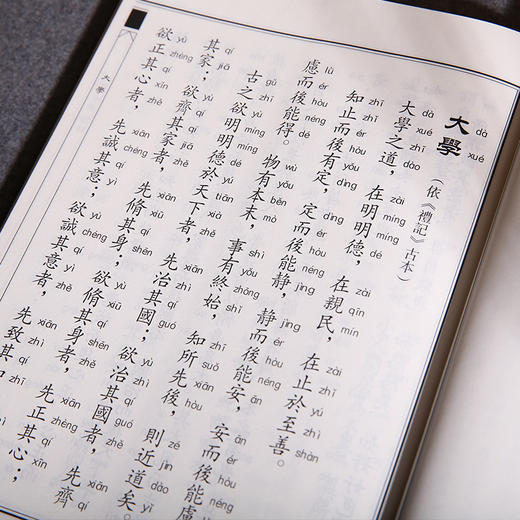 大學
dà xué
（依《禮記》古本）
大學之道，在明明德，在親民，在止於至善。
dà xué zhī dào zài míng míng dé zài qīn mín zài zhǐ yú zhì shàn
知止而後有定，定而後能静，静而後能安，安而後能慮，
zhī zhǐ ér hòu yǒu dìng dìng ér hòu néng jìng jìng ér hòu néng ān ān ér hòu néng
慮而後能得。物有本末，事有終始，知所先後，則近道矣。
lǜ ér hòu néng dé wù yǒu běn mò shì yǒu zhōng shǐ zhī suǒ xiān hòu zé jìn dào yǐ
古之欲明明德於天下者，先治其國，欲治其國者，先齊
gǔ zhī yù míng míng dé yú tiān xià zhě xiān zhì qí guó yù zhì qí guó zhě xiān qí
其家；欲齊其家者，先脩其身；欲脩其身者，先正其心；
qí jiā yù qí qí jiā zhě xiān xiū qí shēn yù xiū qí shēn zhě xiān zhèng qí xīn
欲正其心者，先誠其意；欲誠其意者，先致其
yù zhèng qí xīn zhě xiān chéng qí yì yù chéng qí yì zhě xiān zhì qí
大學